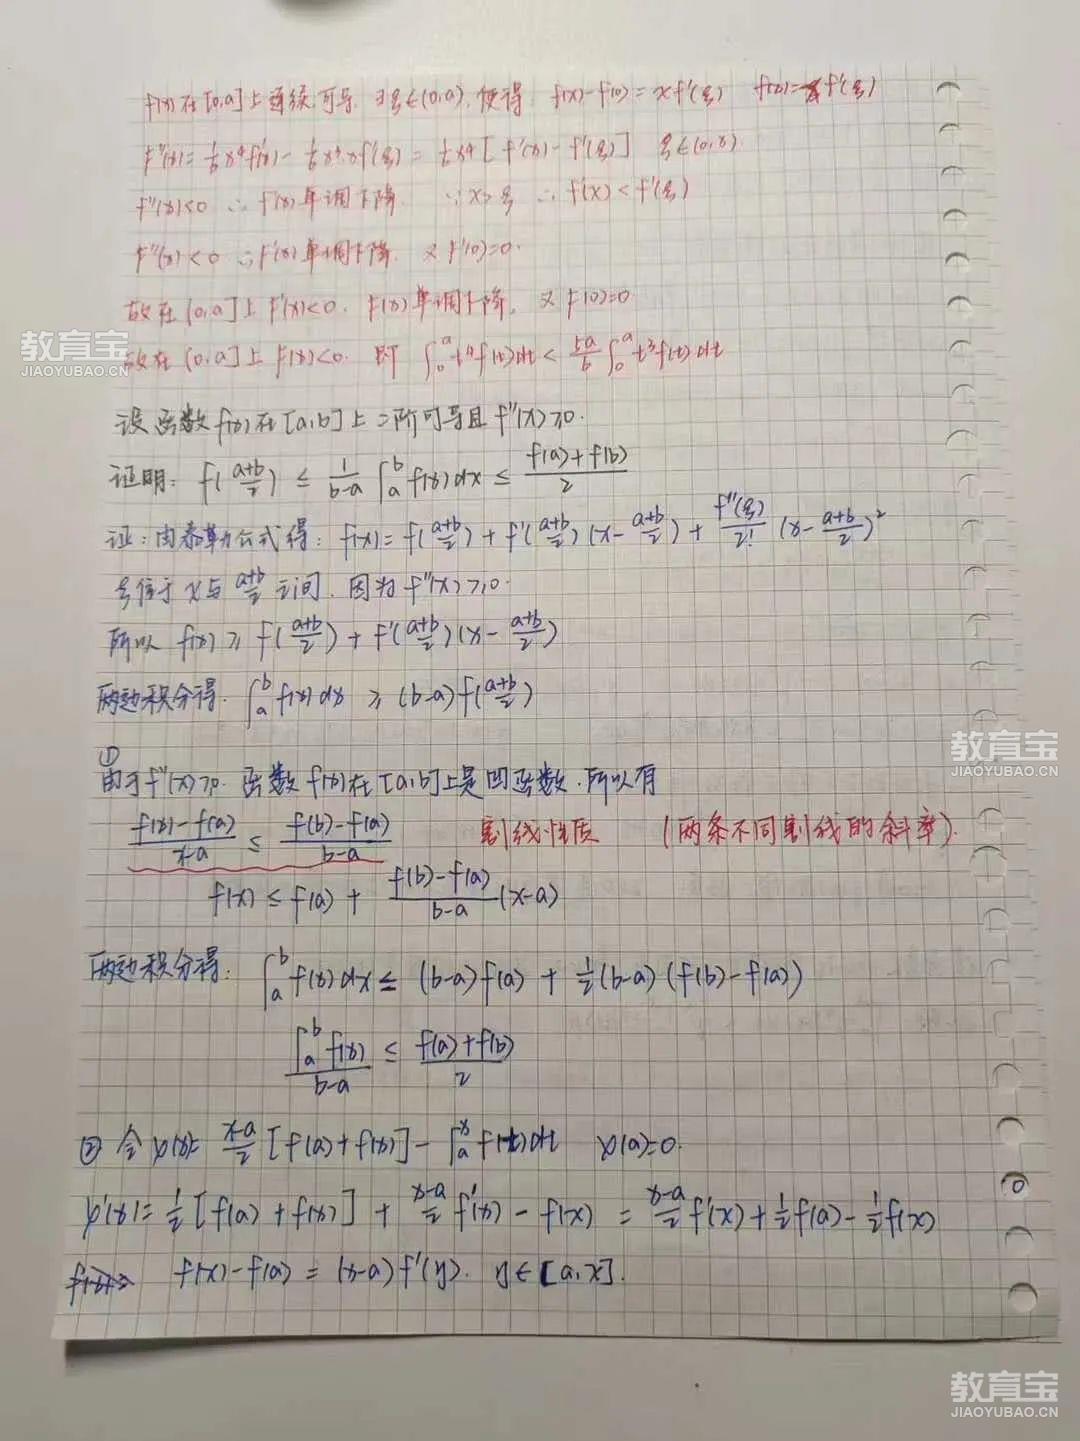 f(x)在[0,a]上连续,可导. ∃ξ∈(0,a),使得 f(x)-f(0)=xf'(ξ) f(x)=xf'(ξ)
F''(x)=\frac{1}{6}x^4f'(x)-\frac{1}{6}x^3·xf'(ξ)=\frac{1}{6}x^4[f'(x)-f'(ξ)] ξ∈(0,x).
f''(x)<0 ∴f'(x)单调下降. ∵x>ξ ∴f'(x)<f'(ξ)
F''(x)<0 ∴F'(x)单调下降. 又F'(0)=0.
故在(0,a]上F'(x)<0. F(x)单调下降. 又F(0)=0
故在(0,a]上F(x)<0. 即 ∫_0^a t^4f(t)dt<\frac{5a}{6}∫_0^a t^3f(t)dt
教育宝
JIAOYUBAO.CN
设函数f(x)在[a,b]上二阶可导且f''(x)≥0.
证明: f(\frac{a+b}{2})≤\frac{1}{b-a}∫_a^b f(x)dx≤\frac{f(a)+f(b)}{2}
证:由泰勒公式得: f(x)=f(\frac{a+b}{2})+f'(\frac{a+b}{2})(x-\frac{a+b}{2})+\frac{f''(ξ)}{2!}(x-\frac{a+b}{2})^2
ξ位于x与\frac{a+b}{2}之间. 因为f''(x)≥0.
所以 f(x)≥f(\frac{a+b}{2})+f'(\frac{a+b}{2})(x-\frac{a+b}{2})
两边积分得. ∫_a^b f(x)dx≥(b-a)f(\frac{a+b}{2})
①
由于f''(x)≥0. 函数f(x)在[a,b]上是凹函数.所以有
\frac{f(x)-f(a)}{x-a}≤\frac{f(b)-f(a)}{b-a} 割线性质 (两条不同割线的斜率).
f(x)≤f(a)+\frac{f(b)-f(a)}{b-a}(x-a)
教育宝
JIAOYUBAO.CN
两边积分得: ∫_a^b f(x)dx≤(b-a)f(a)+\frac{1}{2}(b-a)(f(b)-f(a))
\frac{∫_a^b f(x)}{b-a}≤\frac{f(a)+f(b)}{2}
② 令φ(x)=\frac{x-a}{2}[f(a)+f(x)]-∫_a^x f(t)dt φ(a)=0.
φ'(x)=\frac{1}{2}[f(a)+f(x)]+\frac{x-a}{2}f'(x)-f(x)=\frac{x-a}{2}f'(x)+\frac{1}{2}f(a)-\frac{1}{2}f(x)
f(x)-f(a)=(x-a)f'(y). y∈[a,x].
教育宝
JIAOYUBAO.CN